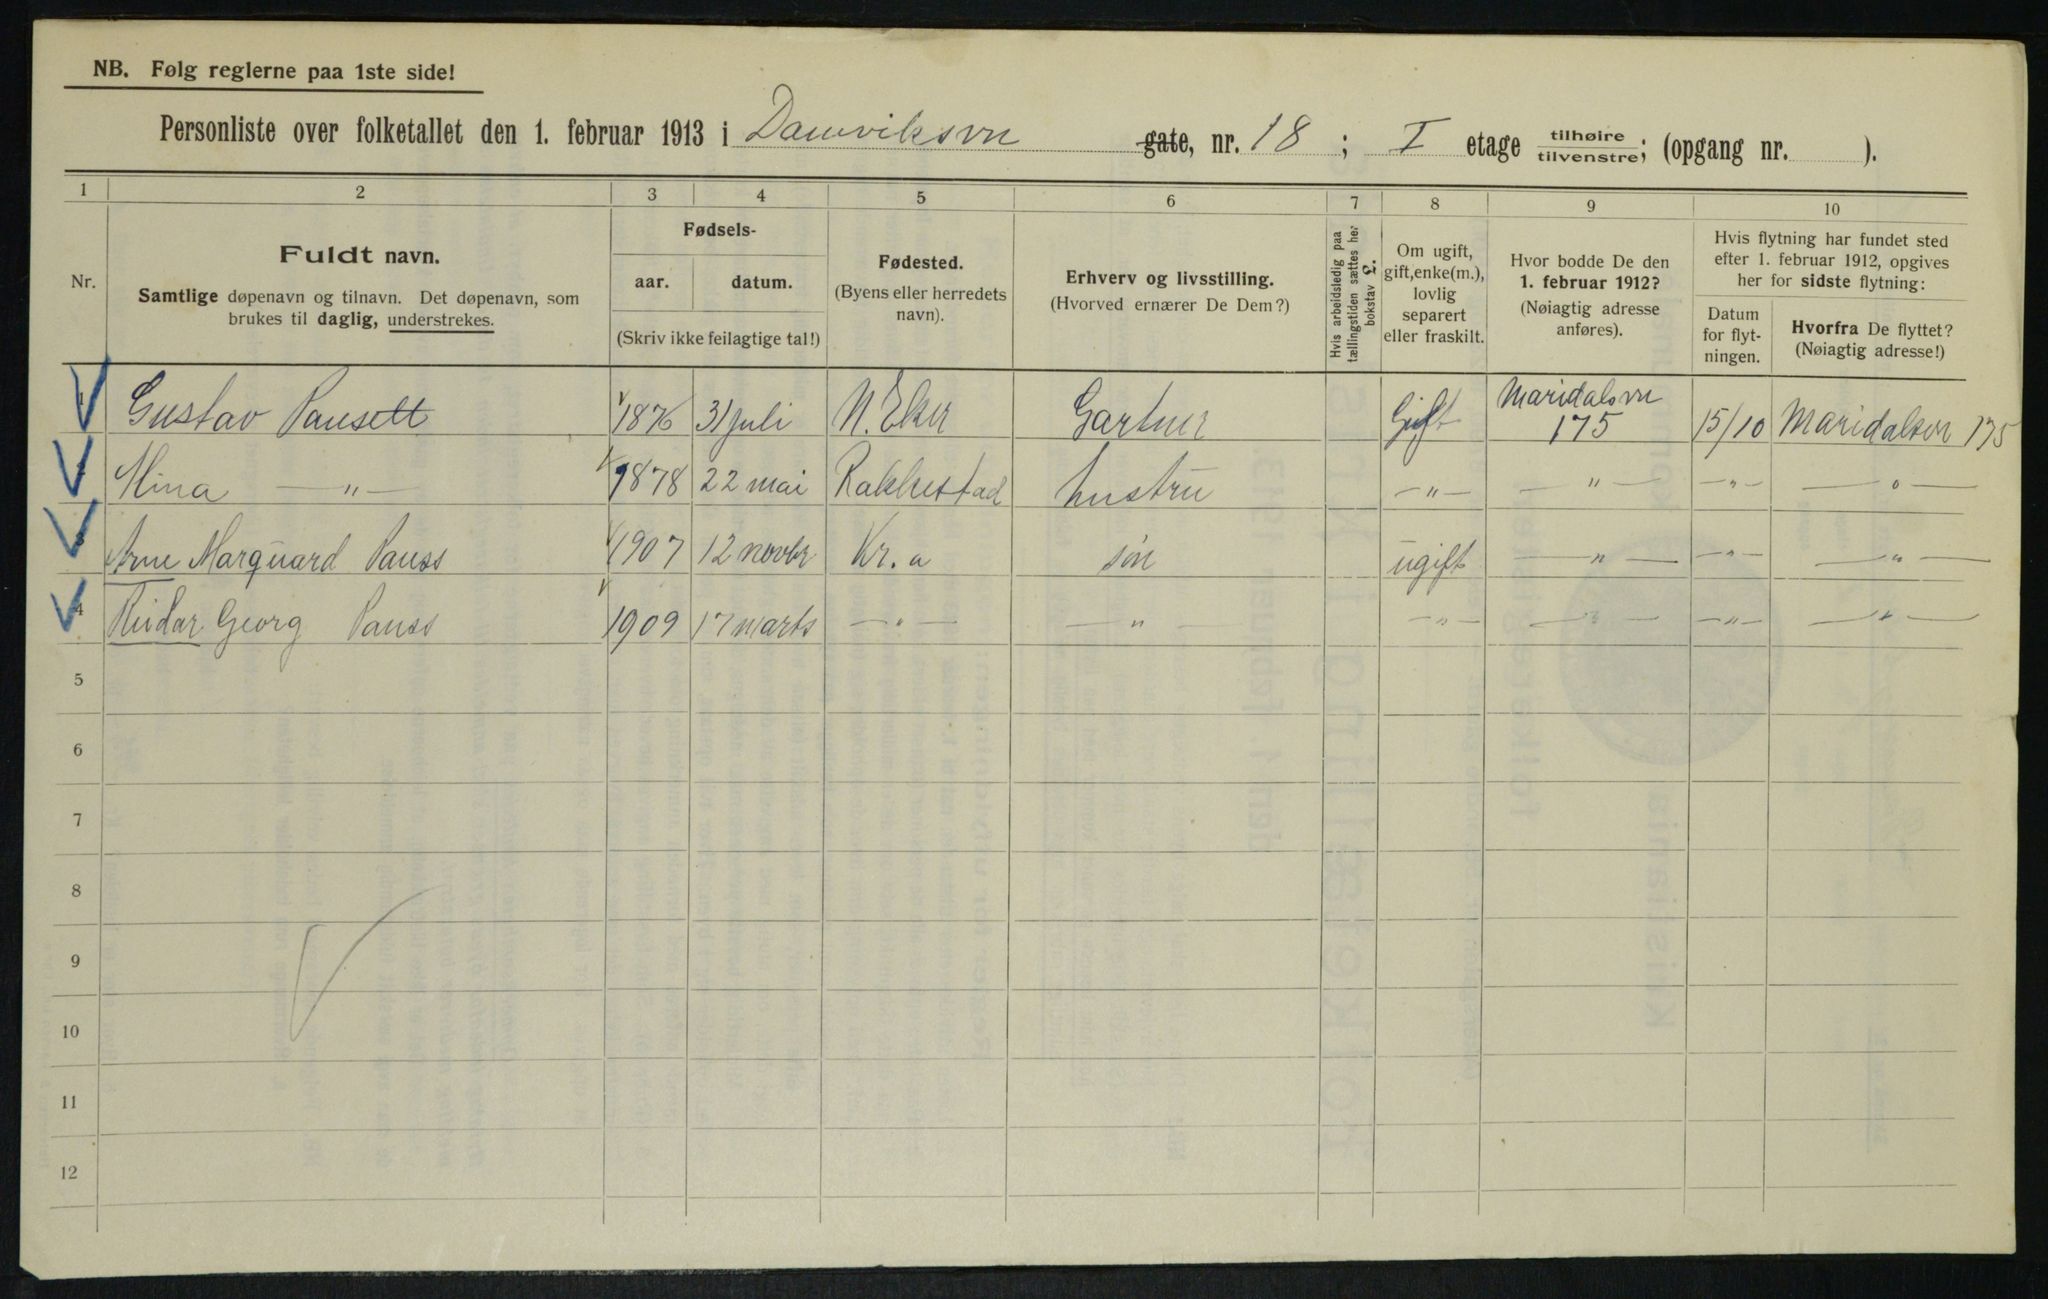 NB. Følg reglerne paa 1ste side!
Personliste over folketallet den 1. februar 1913 i Damviksvn gate, nr. 18; I etage tilhøire / tilvenstre; (opgang nr. ).
1 2 3 4 5 6 7 8 9 10
Nr.
Fuldt navn.
Samtlige døpenavn og tilnavn. Det døpenavn, som
brukes til daglig, understrekes.
Fødsels-
aar. datum.
(Skriv ikke feilagtige tal!)
Fødested.
(Byens eller herredets
navn).
Erhverv og livsstilling.
(Hvorved ernærer De Dem?)
Hvis arbeidsledig paa
tællingstiden sættes her
bokstav L.
Om ugift,
gift, enke(m.),
lovlig
separert
eller fraskilt.
Hvor bodde De den
1. februar 1912?
(Nøiagtig adresse
anføres).
Hvis flytning har fundet sted
efter 1. februar 1912, opgives
her for sidste flytning:
Datum
for flyt-
ningen.
Hvorfra De flyttet?
(Nøiagtig adresse!)
1 Gustav Pauss 1876 31 juli N. Eker Gartner Gift Maridalsvn 175 15/10 Maridalsvn 175
2 Mina —"— 1878 22 mai Rakkestad hustru —"— —"— —"— —"—
3 Arne Marquard Pauss 1907 12 novbr Kr.a søn ugift —"— —"— —"—
4 Reidar Georg Pauss 1909 17 marts —"— —"— —"— —"— —"— —"—
5
6
7
8
9
10
11
12